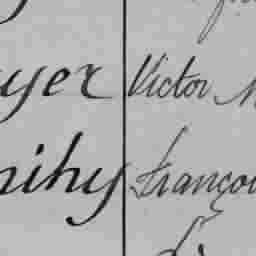 yer Victor
nihy Françoi